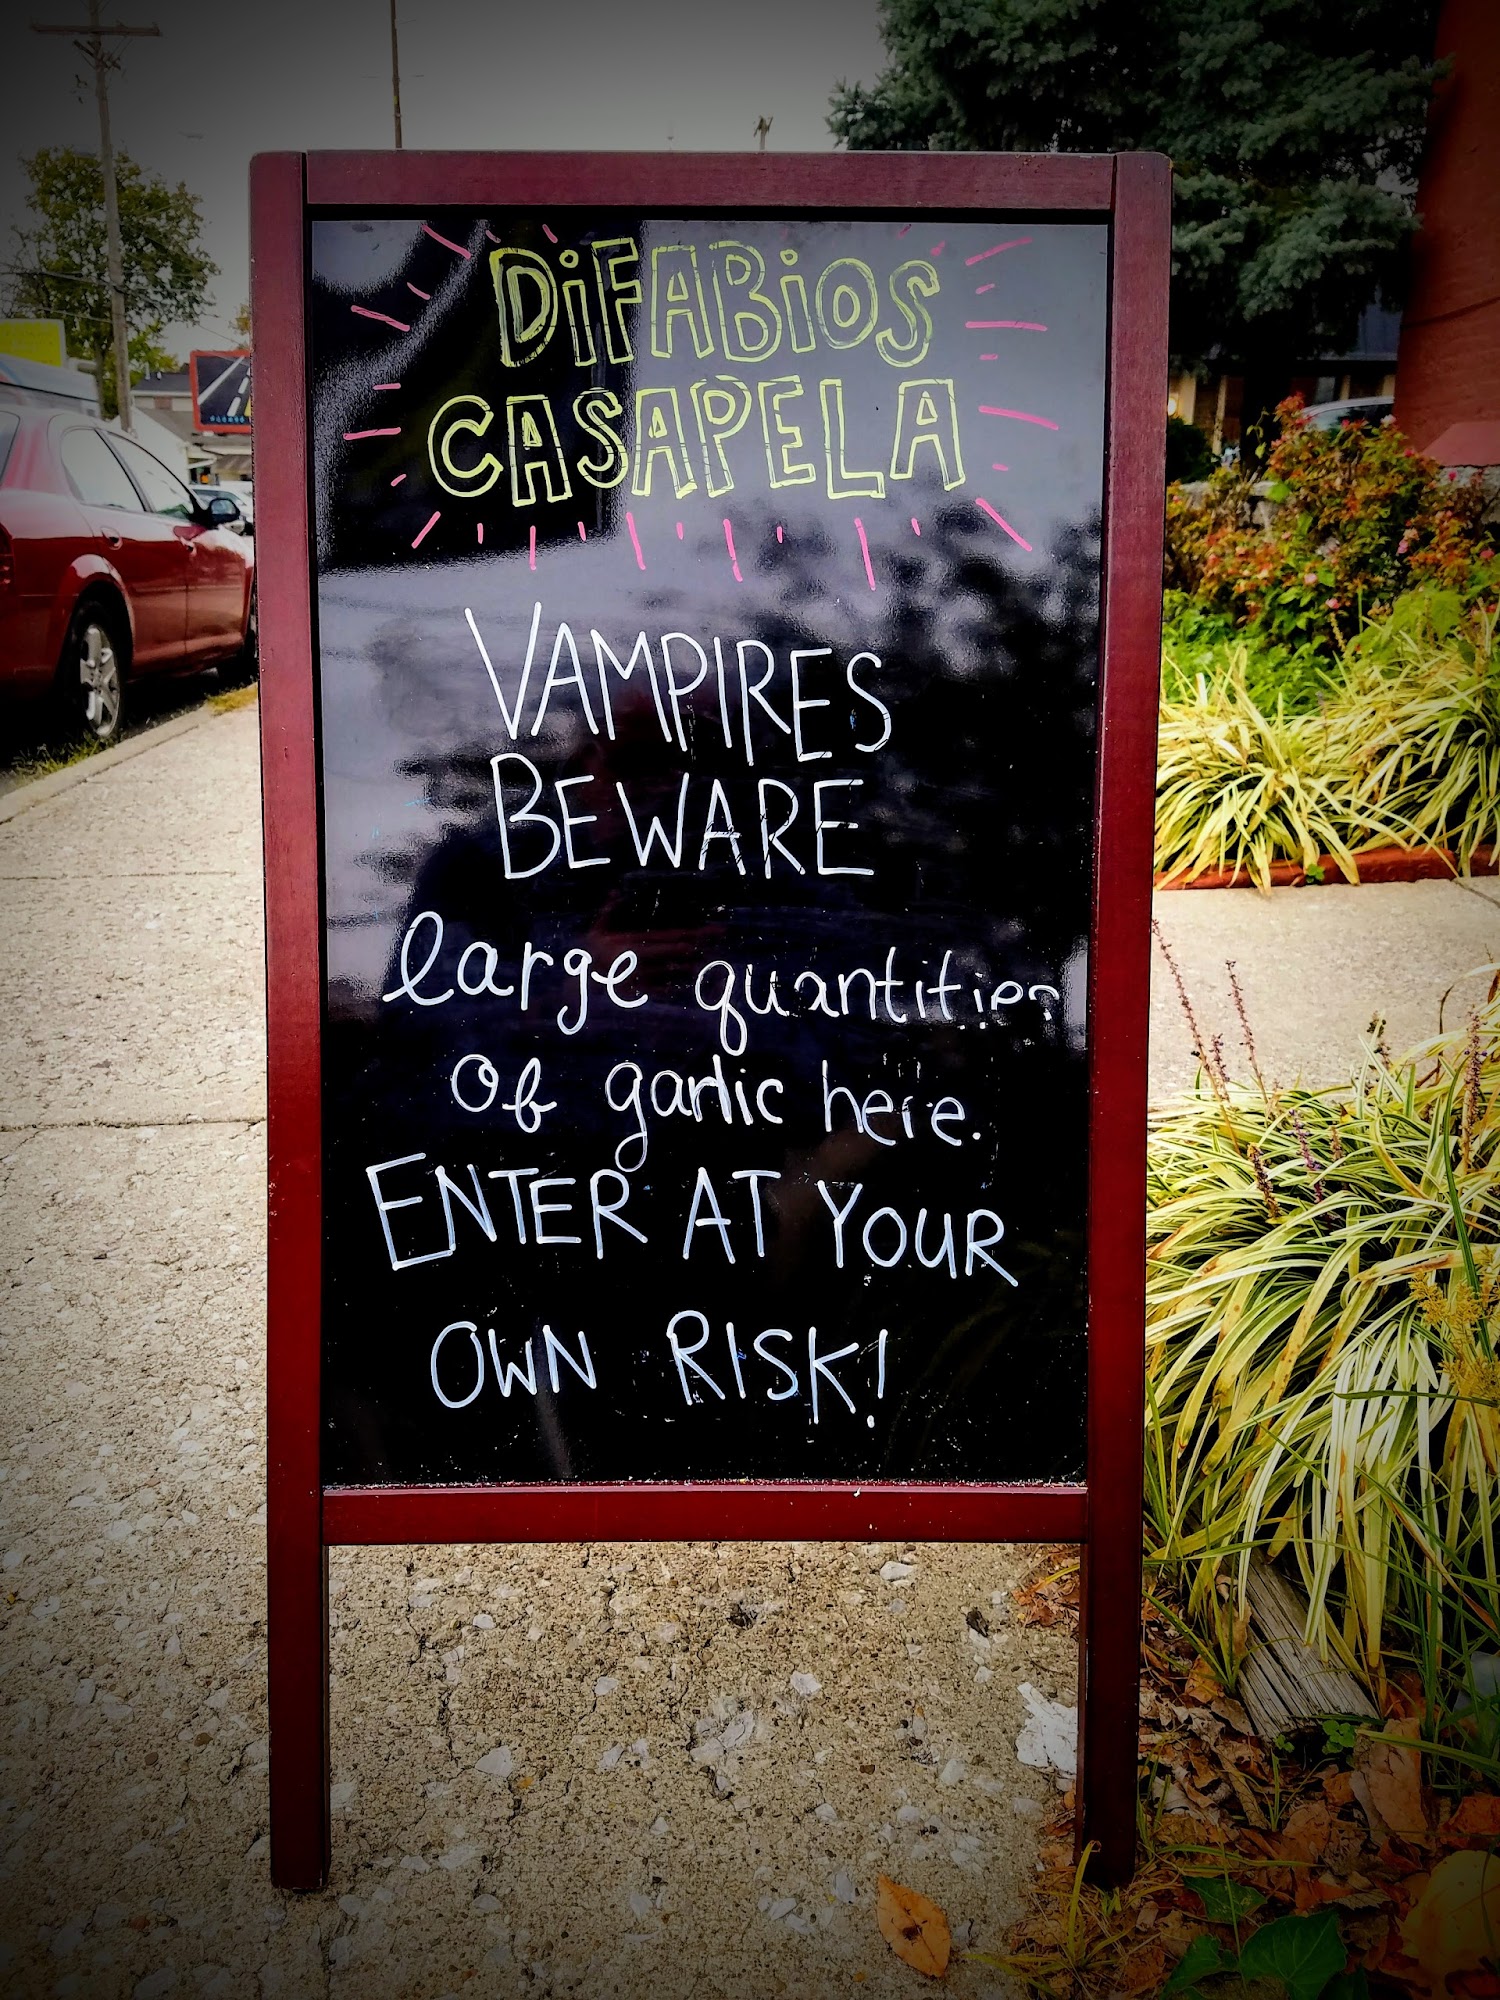 DiFABiOS
CASAPELA
VAMPIRES
BEWARE
large quantities
of garlic here.
ENTER AT YOUR
OWN RISK!